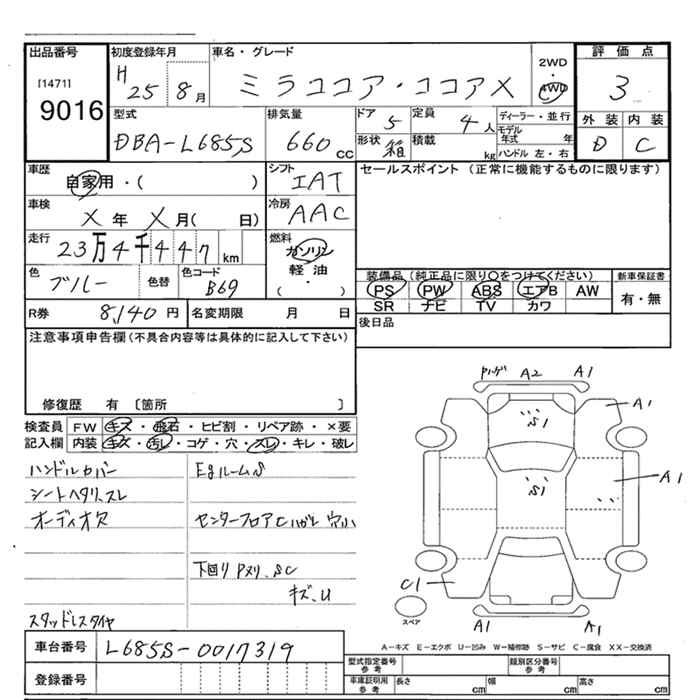 出品番号
[1471]
9016
初度登録年月
H 25 8月
車名・グレード
ミラココア・ココアX
2WD
・
4WD
評価点
3
外装 内装
D C
型式
DBA-L685S
排気量
660 cc
ドア
5
定員
4人
形状
箱
積載
kg
ディーラー・並行
モデル年式 年
ハンドル 左・右
車歴
自家用・( )
シフト
IAT
セールスポイント (正常に機能するものに限ります)
車検
X年 X月( 日)
冷房
AAC
走行
23万4千447km
燃料
ガソリン
軽油
( ・ )
色
ブルー
色替
色コード
B69
装備品(純正品に限り○をつけてください)
PS PW ABS エアB AW
SR ナビ TV カワ
新車保証書
有・無
R券
8,140円
名変期限 月 日
後日品
注意事項申告欄(不具合内容等は具体的に記入して下さい)
修復歴 有 〔箇所 〕
検査員記入欄
FW キズ・飛石・ヒビ割・リペア跡・×要
内装 キズ・汚レ・コゲ・穴・スレ・キレ・破レ
ハンドルカバー
シートヘタリ、スレ
オーディオ欠
スタッドレスタイヤ
EgルームS
センターフロア 穴小
下回りPヌリ、SC
キズ、U
A2 A1
A1
S1
S1
A1
C1
A1 A1
スペア
A-キズ E-エクボ U-凹み W-補修跡 S-サビ C-腐食 XX-交換済
車台番号
L685S-0017319
登録番号
型式指定番号 参考
類別区分番号 参考
車庫証明用 参考
長さ cm 幅 cm 高さ cm